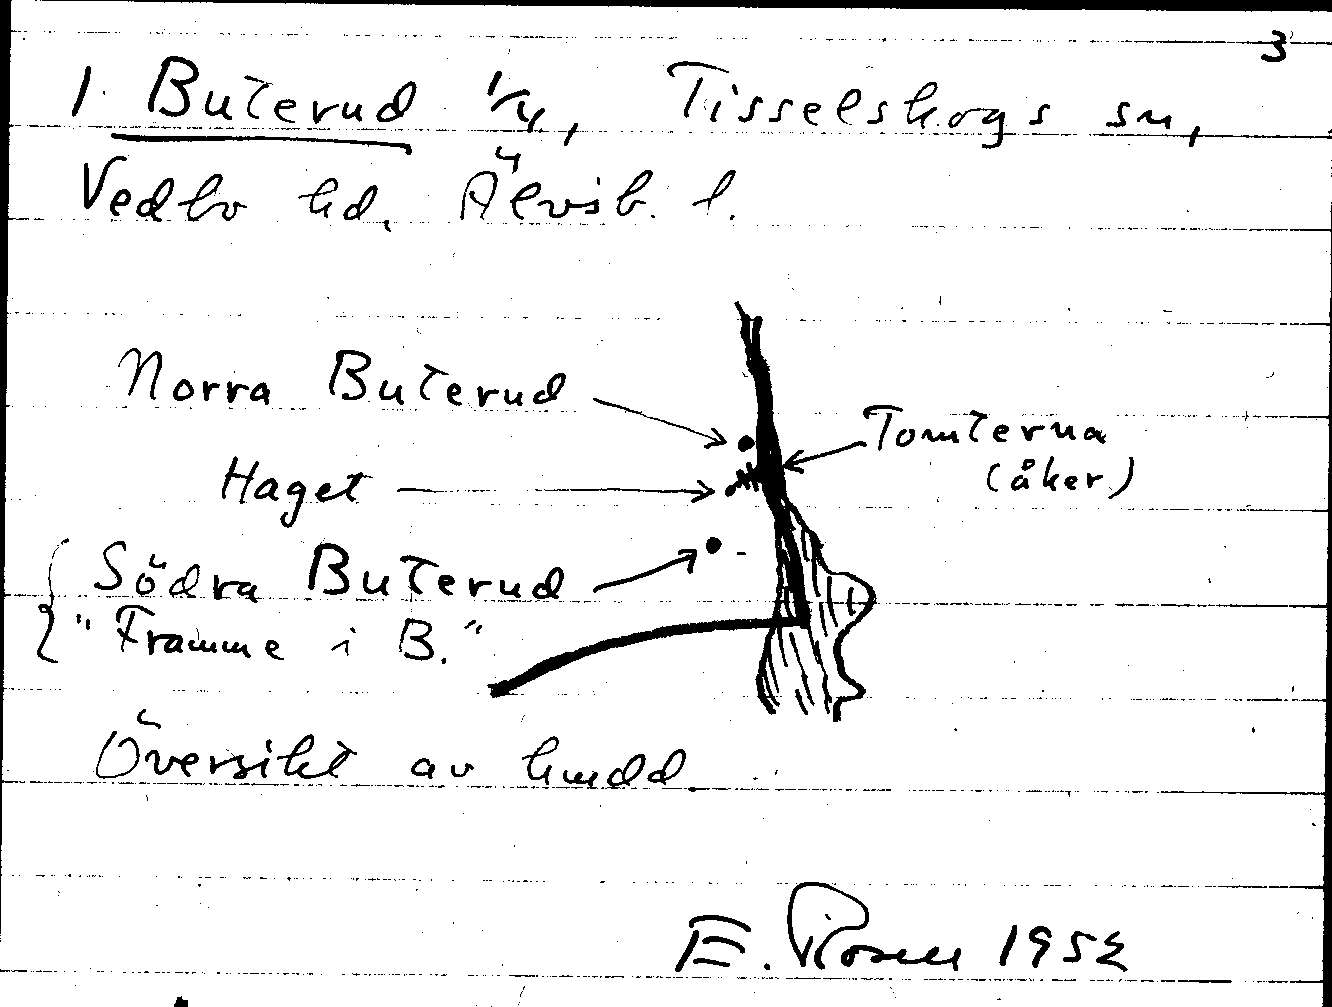 3
1. Buterud 1/4, Tisselskogs sn,
Vedbo hd. Älvsb. l.
Norra Buterud
Tomterna
(åker)
Haget
Södra Buterud
"Framme i B."
Översikt av hmdd
E. Rosell 1952